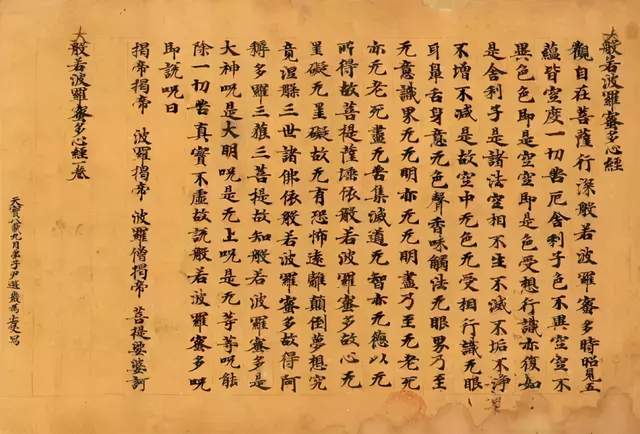 大般若波羅蜜多心經
觀自在菩薩行深般若波羅蜜多時照見五
蘊皆空度一切苦厄舍利子色不異空空不
異色色即是空空即是色受想行識亦復如
是舍利子是諸法空相不生不滅不垢不淨
不增不減是故空中无色无受相行識无眼
耳鼻舌身意无色聲香味觸法无眼界乃至
无意識界无无明亦无无明盡乃至无老死
亦无老死盡无苦集滅道无智亦无德以无
所得故菩提薩埵依般若波羅蜜多故心无
罣礙无罣礙故无有恐怖遠離顛倒夢想究
竟涅槃三世諸佛依般若波羅蜜多故得阿
耨多羅三藐三菩提故知般若波羅蜜多是
大神呪是大明呪是无上呪是无等等呪能
除一切苦真實不虛故說般若波羅蜜多呪
即說呪曰
揭帝揭帝 波羅揭帝 波羅僧揭帝 菩提娑婆訶
大般若波羅蜜多心經一卷
天寶八載九月弟子尹遊 為 寫